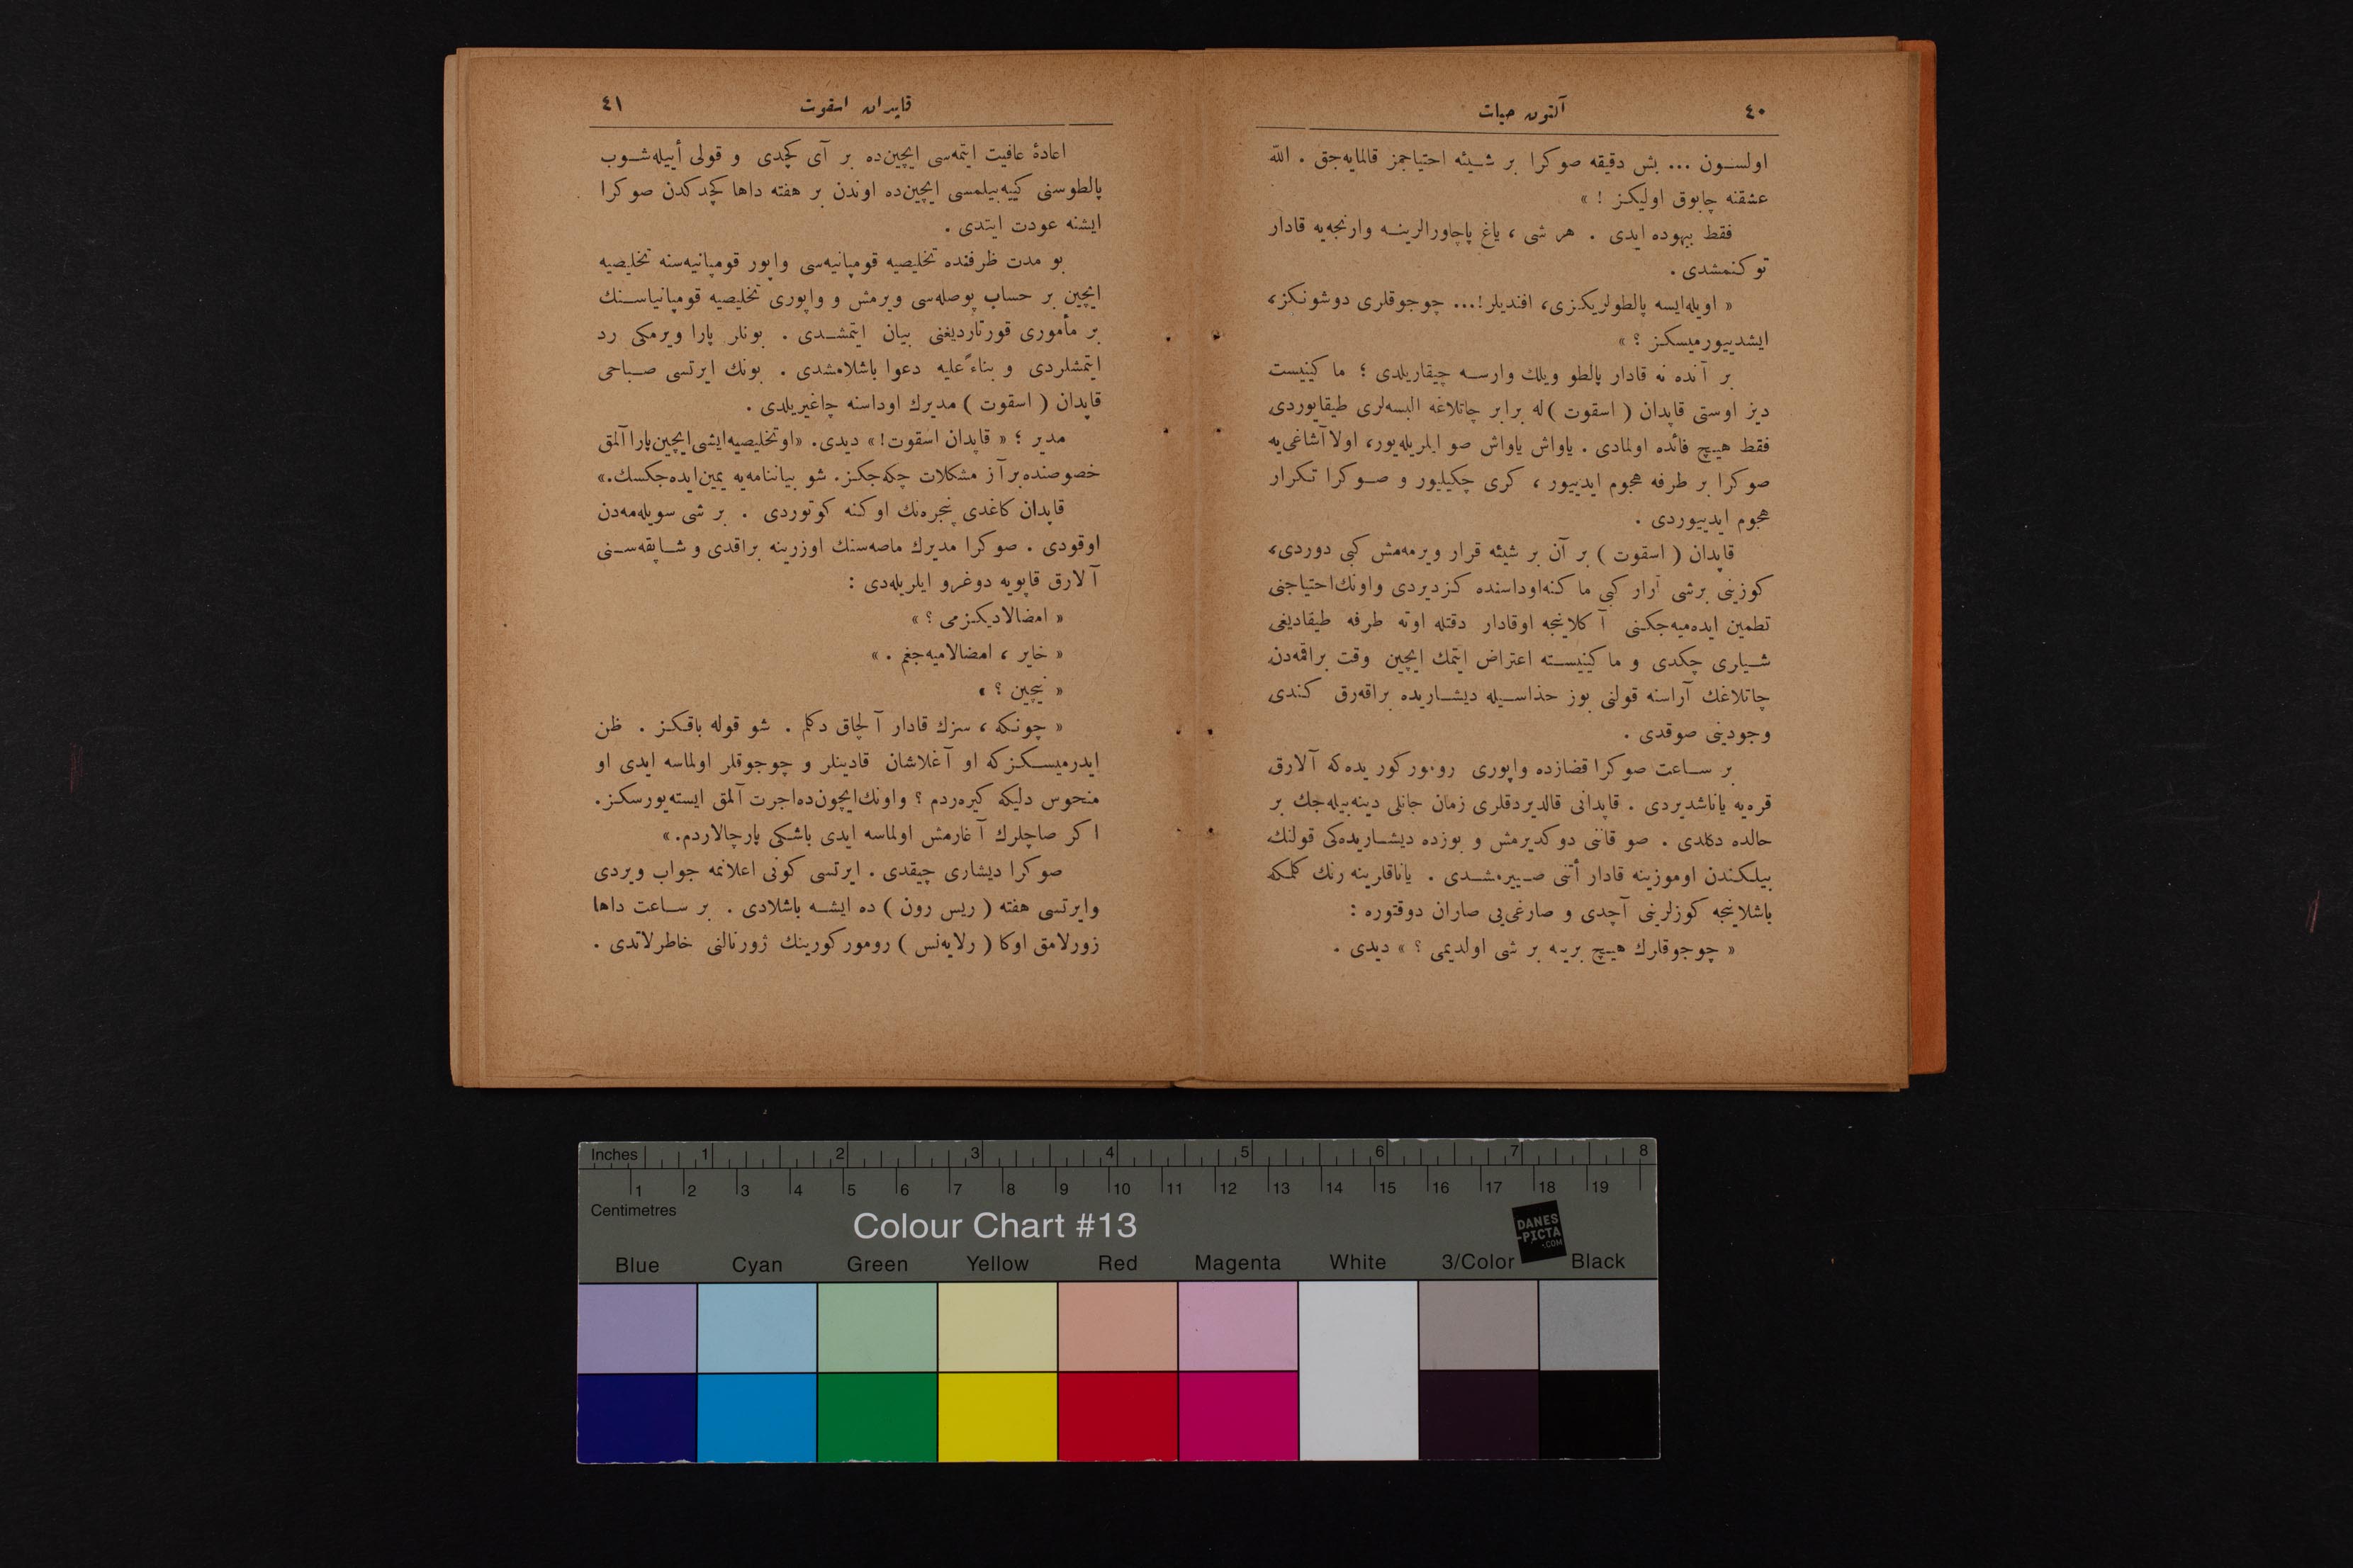 ٤٠
آلتون حیات
اولسون ... بش دقیقه صوکرا بر شیئه احتیاجمز قالمایه‌جق . الله
عشقنه چابوق اولیکز ! »
فقط بیهوده ایدی . هر شی ، یاغ پاچاورالرینه وارنجه‌یه قادار
توکنمشدی .
« اویله‌ایسه پالطولریکزی، افندیلر!... چوجوقلری دوشونکز،
ایشدییورمیسکز ؟ »
بر آنده نه قادار پالطو ویلك وارسه چیقاریلدی ؛ ماکینیست
دیز اوستی قاپدان ( اسقوت )له برابر چاتلاغه البسه‌لری طیقایوردی
فقط هیچ فائده اولمادی . یاواش یاواش صو ایلریله‌یور، اولا آشاغی‌یه
صوکرا بر طرفه هجوم ایدییور ، کری چکیلیور و صوکرا تکرار
هجوم ایدییوردی .
قاپدان ( اسقوت ) بر آن بر شیئه قرار ویرمه‌مش کبی دوردی،
کوزینی برشی آرار کبی ماکنه‌اوداسنده کزدیردی واونك‌احتیاجنی
تطمین ایده‌میه‌جکنی آکلاینجه اوقادار دقتله اوته طرفه طیقادیغی
شیلری چکدی و ماکینیسته اعتراض ایتمك ایچین وقت براقمه‌دن
چاتلاغك آراسنه قولنی بوز حذاسیله دیشاریده براقه‌رق کندی
وجودینی صوقدی .
بر ساعت صوکرا قضازده واپوری روموركور یده‌که آلارق
قره‌یه یاناشدیردی . قاپدانی قالدیردقلری زمان جانلی دینه‌بیله‌جك بر
حالده دکلدی . صو قاننی دوکدیرمش و بوزده دیشاریده‌کی قولنك
بیلکندن اوموزینه قادار أتنی صییرمشدی . یاناقلرینه رنك کلمکه
باشلاینجه کوزلرینی آچدی و صارغی‌یی صاران دوقتوره :
« چوجوقلرك هیچ برینه بر شی اولدیمی ؟ » دیدی .
قاپدان اسقوت
٤١
اعادهٔ عافیت ایتمه‌سی ایچین‌ده بر آی کچدی و قولی أییله‌شوب
پالطوسنی کییه‌بیلمسی ایچین‌ده اوندن بر هفته داها کچدکدن صوکرا
ایشنه عودت ایتدی .
بو مدت ظرفنده تخلیصیه قومپانیه‌سی واپور قومپانیه‌سنه تخلیصیه
ایچین بر حساب پوصله‌سی ویرمش و واپوری تخلیصیه قومپانیاسنك
بر مأموری قورتاردیغنی بیان ایتمشدی . بونلر پارا ویرمکی رد
ایتمشلردی و بناءً علیه دعوا باشلامشدی . بونك ایرتسی صباحی
قاپدان ( اسقوت ) مدیرك اوداسنه چاغیریلدی .
مدیر ؛ « قاپدان اسقوت! » دیدی. «اوتخلیصیه‌ایشی‌ایچین‌پاراآلمق
خصوصنده‌برآز مشکلات چکه‌جکز. شو بیاننامه‌یه یمین‌ایده‌جکسك.»
قاپدان کاغدی پنجره‌نك اوکنه کوتوردی . بر شی سویله‌مه‌دن
اوقودی . صوکرا مدیرك ماصه‌سنك اوزرینه براقدی و شاپقه‌سنی
آلارق قاپویه دوغرو ایلریله‌دی :
« امضالادیکزمی ؟ »
« خایر ، امضالامیه‌جغم . »
« نیچین ؟ »
« چونکه ، سزك قادار آلچاق دکلم . شو قوله باقکز . ظن
ایدرمیسکزکه او آغلاشان قادینلر و چوجوقلر اولماسه ایدی او
منحوس دلیکه کیره‌ردم ؟ واونك‌ایچون‌ده‌اجرت آلمق ایسته‌یورسکز.
اکر صاچلرك آغارمش اولماسه ایدی باشکی پارچالاردم. »
صوکرا دیشاری چیقدی . ایرتسی کونی اعلانمه جواب ویردی
وایرتسی هفته ( ریس رون ) ده ایشه باشلادی . بر ساعت داها
زورلامق اوکا ( رلایه‌نس ) رومورکورینك ژورنالنی خاطرلاتدی .
Inches 1 2 3 4 5 6 7 8
1 2 3 4 5 6 7 8 9 10 11 12 13 14 15 16 17 18 19
Centimetres
Colour Chart #13
DANES
-PICTA
.COM
Blue Cyan Green Yellow Red Magenta White 3/Color Black